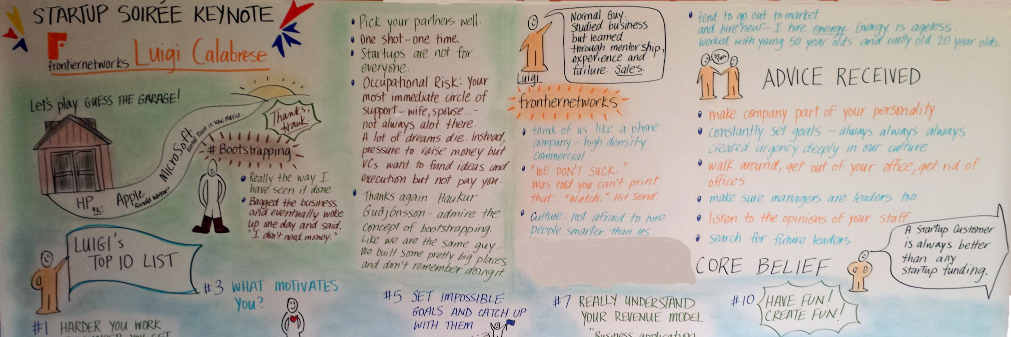 STARTUP SOIRÉE KEYNOTE
F
frontiernetworks
Luigi Calabrese
Let's play GUESS THE GARAGE!
HP
Apple
Ronald Wayne?
MICROSOFT
Thanks,
# Bootstrapping
Really the way I
have seen it done
Bagged the business
and eventually woke
up one day and said,
I don't need money."
LUIGI'S
TOP 10 LIST
#1 HARDER YOU WORK
#3 WHAT MOTIVATES
YOU?
Pick your partners well.
One shot-one time.
Startups are not for
everyone.
Occupational Risk: Your
most immediate circle of
support-wife, spouse...-
not always alot there.
A lot of dreams die instead,
pressure to raise money but
VCs want to fund ideas and
execution but not pay you.
Thanks again Haukur
Guðjónsson - admire the
concept of bootstrapping.
Like we are the same guy...
We built some pretty big places
and don't remember doing it
#5 SET IMPOSSIBLE
GOALS AND CATCH UP
WITH THEM
Luigi
Normal Guy.
Studied business
but learned
through mentorship,
experience and
failure Sales.
frontiernetworks
think of us like a phone
company-high density
commercial
"WE DON'T SUCK."
Was told you can't print
that. "Watch." Hit send.
Culture: not afraid to hire
people smarter than us.
#7 REALLY UNDERSTAND
YOUR REVENUE MODEL
"Business application
tend to go out to market
and hire new- I hire energy. Energy is ageless.
worked with young 50 year olds and really old 20 year olds.
ADVICE RECEIVED
make company part of your personality
constantly set goals - always always always
created urgency deeply in our culture
walk around, get out of your office, get rid of
offices.
make sure managers are leaders too
listen to the opinions of your staff
search for future leaders
CORE BELIEF
A Startup Customer
is always better
than any
startup funding.
#10 HAVE FUN!
CREATE FUN!